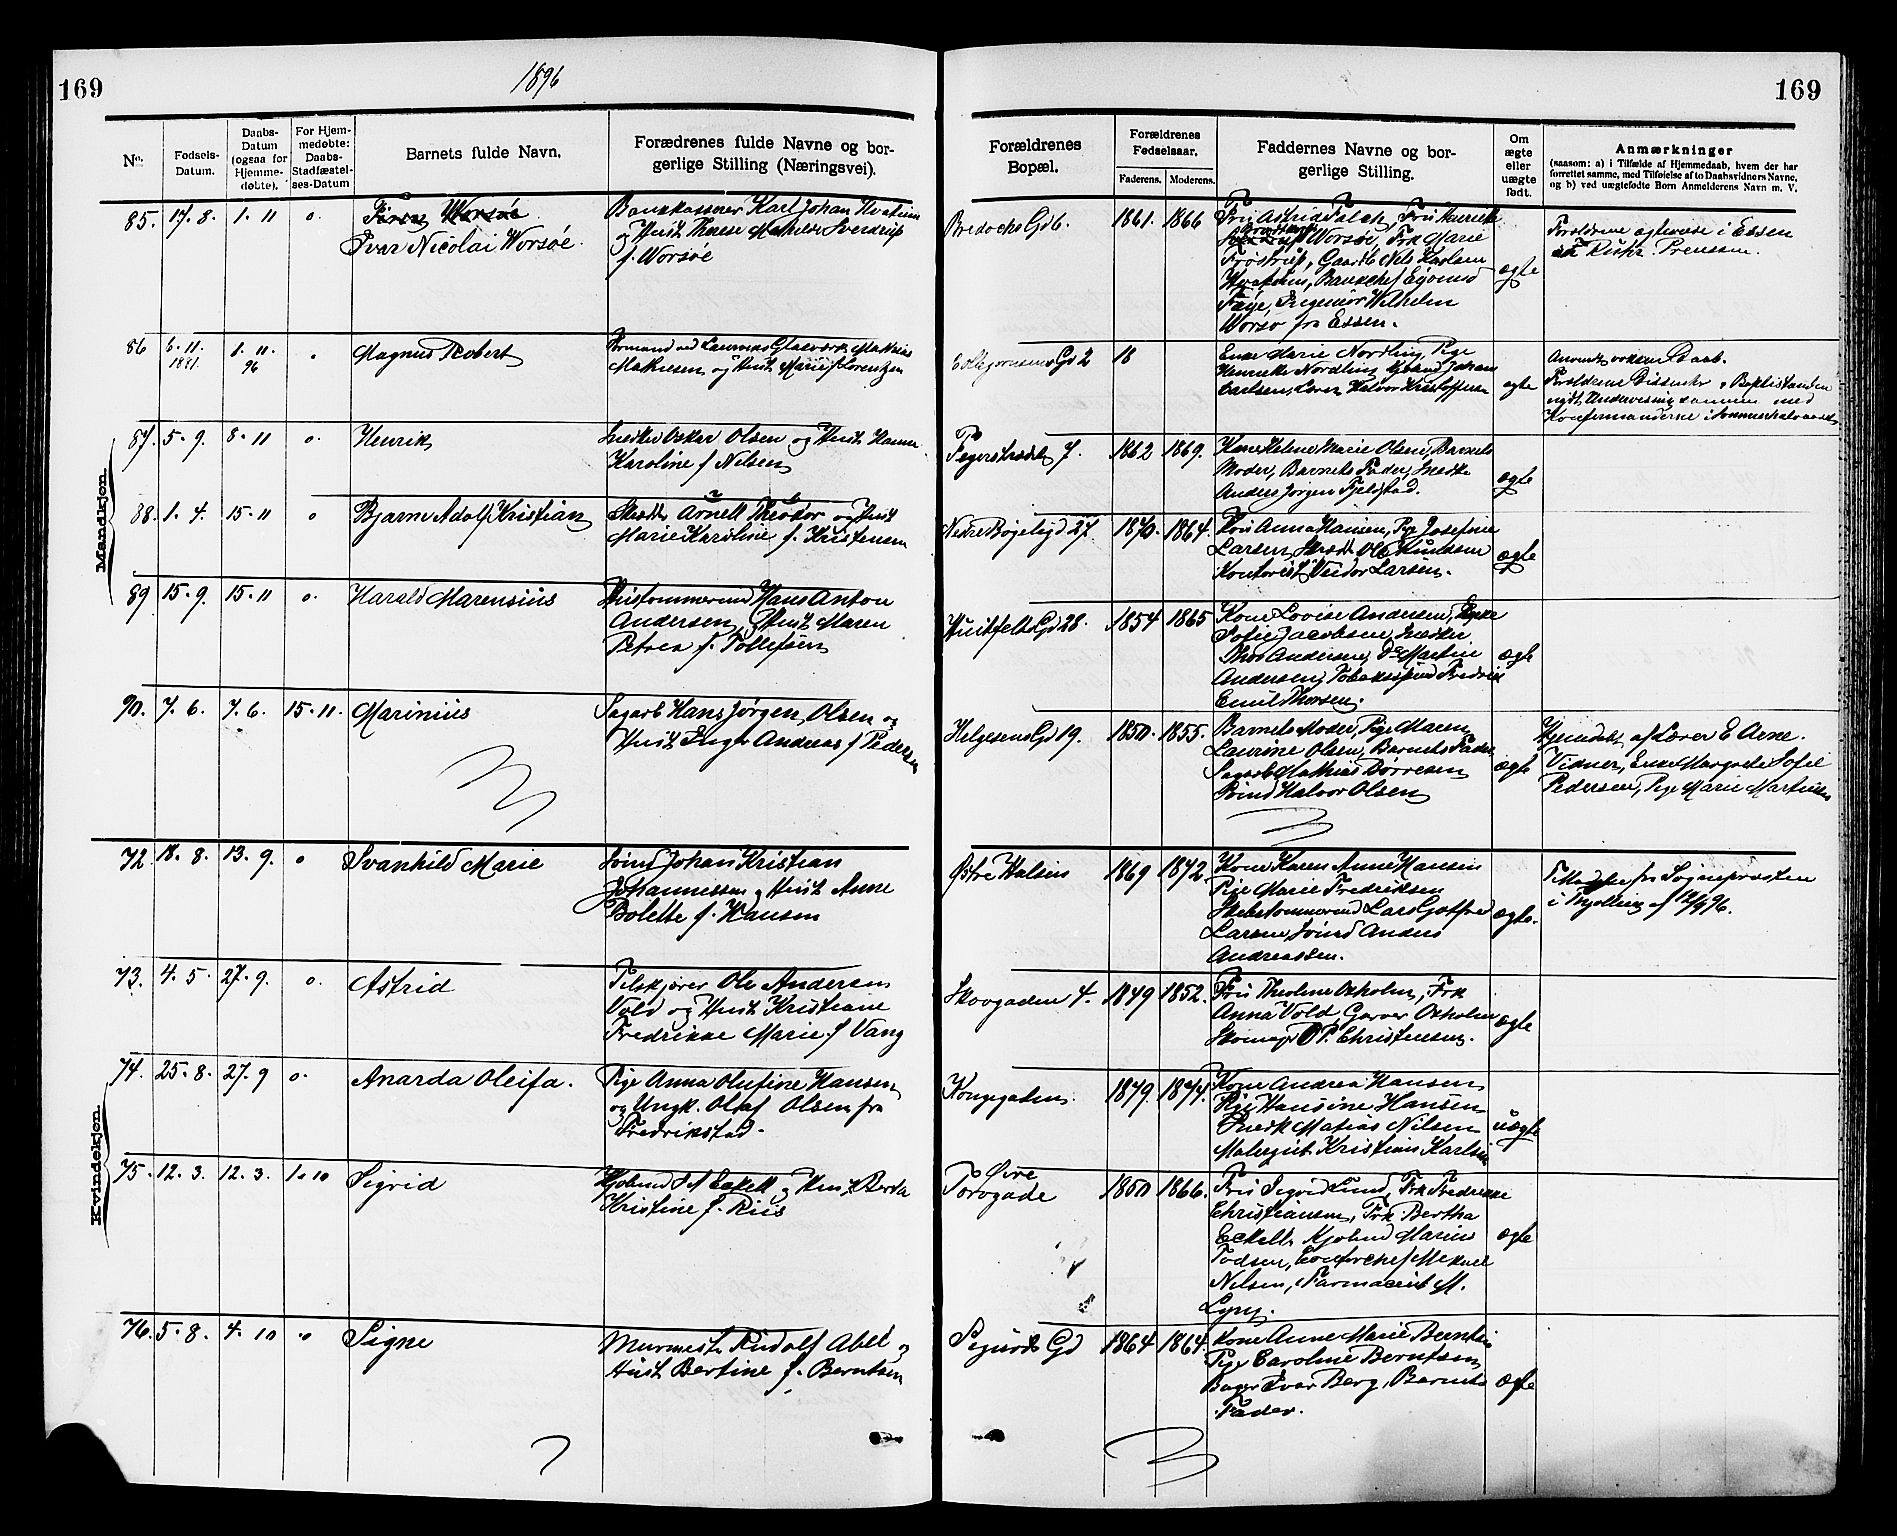 169
1896
169
No:
Fødsels-
Datum.
Daabs-
Datum
(ogsaa for
Hjemme-
døbte).
For Hjem-
medøbte:
Daabs-
Stadfæstel-
ses-Datum
Barnets fulde Navn.
Forædrenes fulde Navne og bor-
gerlige Stilling (Næringsvei).
Forældrenes
Bopæl.
Forældrenes
Fødselsaar.
Faderens.
Moderens.
Faddernes Navne og bor-
gerlige Stilling.
Om
ægte
eller
uægte
født.
Anmærkninger
(saasom: a) i Tilfælde af Hjemmedaab, hvem der har
forrettet samme, med Tilføielse af to Daabsvidners Navne,
og b) ved uægtefødte Børn Anmelderens Navn m. V.
Mandkjøn.
85. 17. 8. 1. 11 o.
Ivar Nicolai Worsøe.
Karl Johan
og Hust. Therese Mathilde Sverdrup
f. Worsøe
1861. 1866
Fru Astrid Falck, Fru Henrikke
Worsøe, Frk Marie
Frøstrup, Gaardb Nils Karlsen
Banechef Eyvind
Ingeniør Wilhelm
Worsø fra Essen.
ægte
Forældrene ægteviede i Essen
Preussen.
86 6. 11. 1881. 1. 11. 96
Magnus Robert
Formand ved Laurviks Glasværk Mathias
Mathiesen og Hust Marie f Lorentzen
Gd 2 18
Enke Marie Nordling, Pige
Henrikke Nordling, Johan
Carlsen, Halvor Kristoffersen
ægte
voksen Daab.
Forældrene Dissentere
Undervisning sammen med
Konfirmanderne i Sommerhalvaaret
87. 5. 9. 8. 11 o.
Henrik
Snedker Oskar Olsen og Hust. Hanna
Karoline f Nilsen
7. 1862 1869.
Kone Helene Marie Olsen, Barnets
Moder, Barnets Fader, Snedker
Anders Jørgen Fjeldstad.
ægte
88. 1. 4. 15. 11 o
Bjarne Adolf Kristian
Arnell Theodor og Hust
Marie Karoline f. Kristensen
Nedre Bøjeligd 27 1870. 1864.
Fru Anna Hansen, Pige Josefine
Larsen, Ole Knudsen
Kontorist Larsen.
ægte
89 15. 9. 15. 11 o.
Harald Marensius
Hustømmermd Hans Anton
Andersen, Hust Maren
Petrea f. Tollefsen
Huitfeldts Gd 28. 1854 1865
Kone Lovise Andersen, Enke
Sofie Jacobsen, Snedker
Thor Andersen, Do Martin
Andersen, Fredrik
Emil Thorsen.
ægte
90. 7. 6. 7. 6. 15. 11.
Marinius
Sagarb Hans Jørgen Olsen og
Hust Inger Andrea f Pedersen
Helgesens Gd 19. 1850. 1855.
Barnets Moder, Pige Maren
Laurine Olsen, Barnets Fader
Sagarb Mathias Børresen
Halvor Olsen
ægte
Hjemdøbt af Lærer E Arne.
Vidner, Enke Margrete Sofie
Pedersen, Pige Marie Martinsen
Kvindekjøn.
72 18. 8. 13. 9. o
Svanhild Marie
Sømd Johan Kristian
Johannessen og Hust Anne
Bolette f. Hansen
Østre Halsen 1869 1872.
Kone Karen Anne Hansen
Pige Marie Fredriksen
Skibstømmermd Lars Gotfred
Larsen, Sømd Anders
Andreassen.
ægte.
fra Sognepræsten
i Tjølling af 12/9 96.
73. 4. 5. 27. 9. o.
Astrid
Pelskjører Ole Andersen
Vold og Hust Kristiane
Fredrikke Marie f Vang
Skovgaden 4. 1849 1852.
Fru Theoline Oxholm, Frk
Anna Vold, Garver Oxholm
Skomager P. Christensen.
ægte
74. 25. 8. 27. 9 o.
Anarda Oleifa.
Pige Anna Olufine Hansen
og Ungk. Olaf Olsen fra
Fredrikstad.
Kongegaden. 1879. 1874.
Kone Andrea Hansen
Pige Hansine Hansen
Snedk Matias Nilsen
Malergut Kristian Karlsen
uægte
75. 12. 3. 12. 3. 1. 10
Sigrid
Kjøbmd Eckell og Hust Berta
Kristine f. Riis
Øvre
Torvgade 1850 1866.
Fru Sigrid Lund, Frk Fredrikke
Christiansen, Frk Bertha
Eckell, Kjøbmd Marius
Todsen,
Nilsen, Farmaceut M.
Lyng.
ægte
76. 5. 8. 4. 10 o
Signe
Murmestr Rudolf Abel og
Hust Bertine f. Berntsen
Sigurds Gd 1864 1864.
Kone Anne Marie Berntsen
Pige Caroline Berntsen
Bager Ivar Berg, Barnets
Fader.
ægte